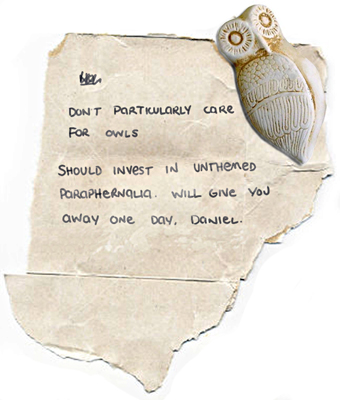 DON'T PARTICULARLY CARE
FOR OWLS
SHOULD INVEST IN UNTHEMED
PARAPHERNALIA. WILL GIVE YOU
AWAY ONE DAY, DANIEL.